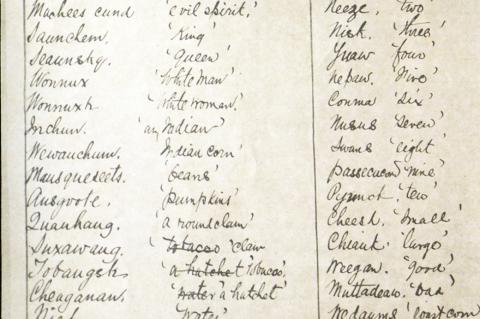 Machees cund 'evil spirit,'
Saunchem. 'King'
Seaunsky. 'Queen'
Wonnux 'White man'
Wonnuxk 'White woman.'
Inchun. 'an Indian'
Wewauchum. Indian corn'
Mausqueseets. 'beans'
Ausgoote. 'pumpkins'
Quanhang. 'a round clam'
Suxawang. 'tobacco 'clam
Tobaugsk 'a hatchet tobacco,
Cheaganan. 'water 'a hatchet'
'Water'
Neeze. 'two'
Nisk. 'three'
Yuaw 'four'
nepaw. 'five'
Conma 'six'
Nusus 'seven'
Swans 'eight'
passecucon 'nine'
'ten'
Cheest. 'Small'
Chiauk. 'large'
Weegan. 'good'
Muttadeaw. 'Bad'